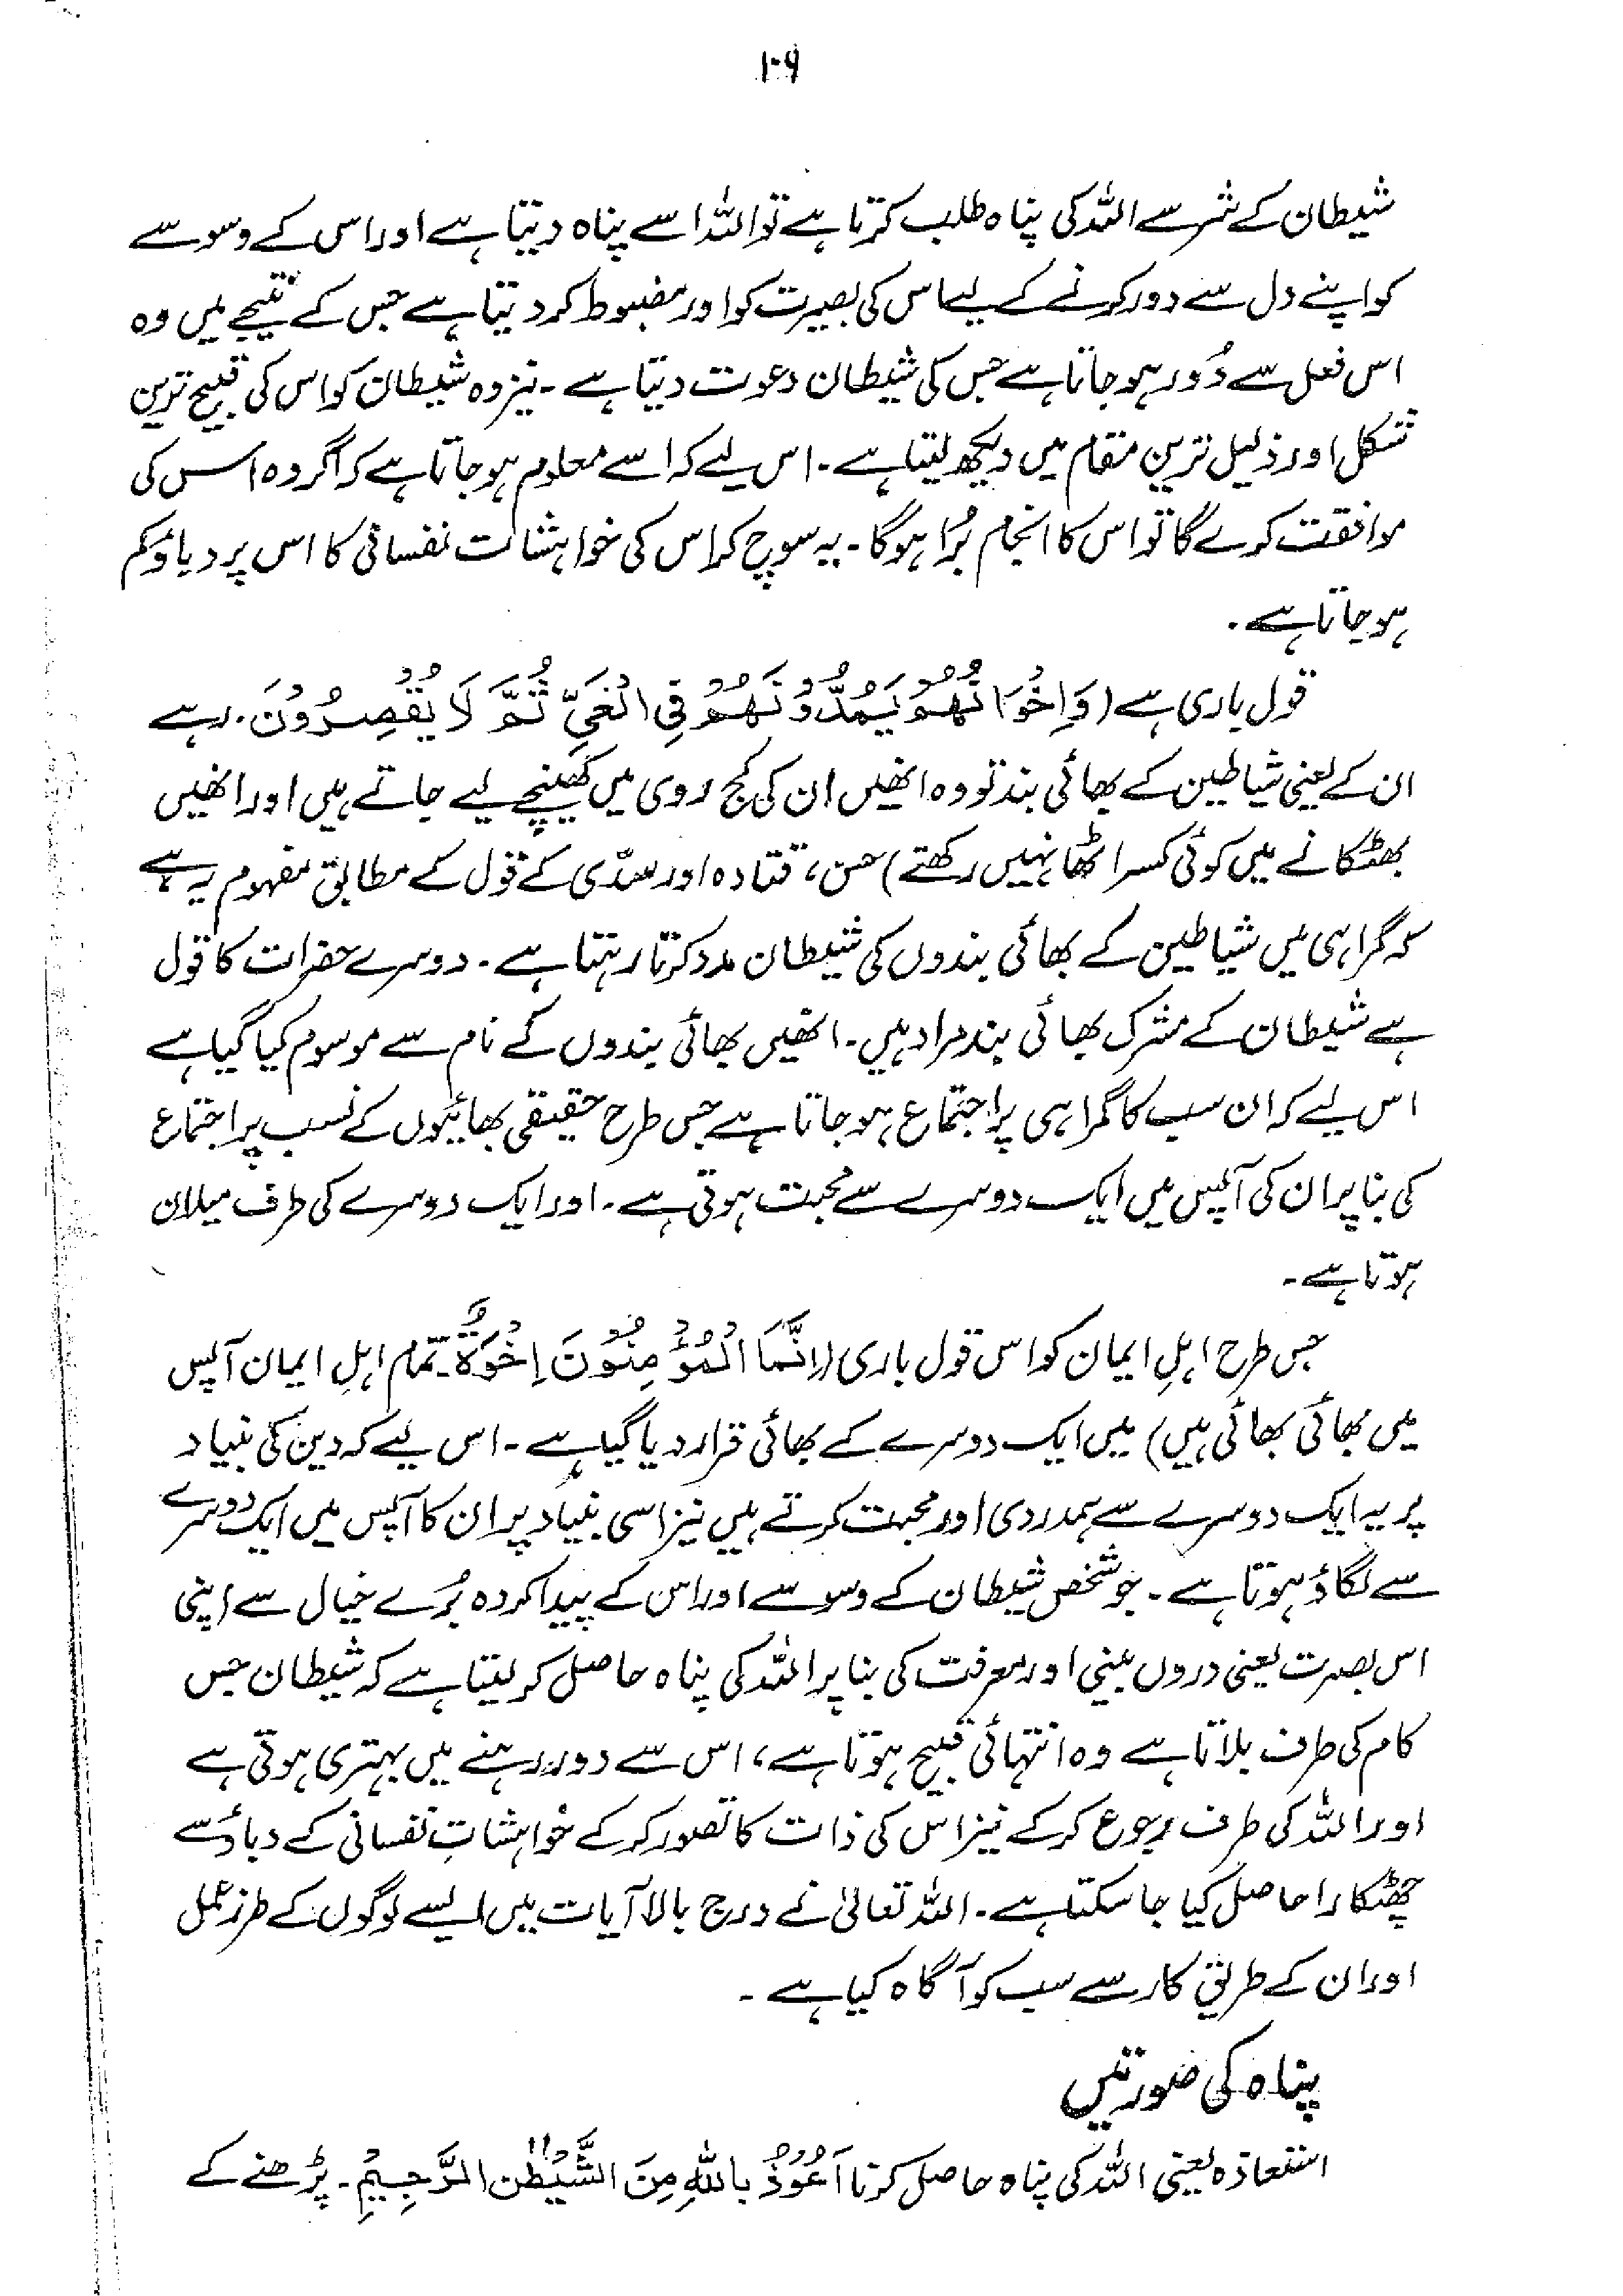 ۱۰۹
شیطان کے شر سے اللہ کی پناہ طلب کرتا ہے تو اللہ اسے پناہ دیتا ہے اور اس کے وسوسے
کو اپنے دل سے دور کرنے کے لیے اس کی بصیرت کو اور مضبوط کر دیتا ہے جس کے نتیجے میں وہ
اس فعل سے دُور ہو جاتا ہے جس کی شیطان دعوت دیتا ہے۔ نیز وہ شیطان کو اس کی قبیح ترین
شکل اور ذلیل ترین مقام میں دیکھ لیتا ہے۔ اس لیے کہ اسے معلوم ہو جاتا ہے کہ اگر وہ اس کی
موافقت کرے گا تو اس کا انجام بُرا ہوگا۔ یہ سوچ کر اس کی خواہشات نفسانی کا اس پر دباؤ کم
ہو جاتا ہے۔
قول باری ہے (وَاِخْوَانُهُمْ يَمُدُّوْنَهُمْ فِي الْغَيِّ ثُمَّ لَا يُقْصِرُوْنَ۔ رہے
ان کے یعنی شیاطین کے بھائی بند تو وہ انھیں ان کی کج روی میں کھینچے لیے جاتے ہیں اور انھیں
بھٹکانے میں کوئی کسر اٹھا نہیں رکھتے) حسن، قتادہ اور سدّی کے قول کے مطابق مفہوم یہ ہے
کہ گمراہی میں شیاطین کے بھائی بندوں کی شیطان مدد کرتا رہتا ہے۔ دوسرے حضرات کا قول
ہے شیطان کے مشرک بھائی بند مراد ہیں۔ انھیں بھائی بندوں کے نام سے موسوم کیا گیا ہے
اس لیے کہ ان سب کا گمراہی پر اجتماع ہو جاتا ہے جس طرح حقیقی بھائیوں کے نسب پر اجتماع
کی بنا پر ان کی آپس میں ایک دوسرے سے محبت ہوتی ہے۔ اور ایک دوسرے کی طرف میلان
ہوتا ہے۔
جس طرح اہلِ ایمان کو اس قول باری (اِنَّمَا الْمُؤْمِنُوْنَ اِخْوَةٌ۔ تمام اہلِ ایمان آپس
میں بھائی بھائی ہیں) میں ایک دوسرے کے بھائی قرار دیا گیا ہے۔ اس لیے کہ دین کی بنیاد
پر یہ ایک دوسرے سے ہمدردی اور محبت کرتے ہیں نیز اسی بنیاد پر ان کا آپس میں ایک دوسرے
سے لگاؤ ہوتا ہے۔ جو شخص شیطان کے وسوسے اور اس کے پیدا کردہ بُرے خیال سے اپنی
اس بصیرت یعنی دروں بینی اور معرفت کی بنا پر اللہ کی پناہ حاصل کر لیتا ہے کہ شیطان جس
کام کی طرف بلاتا ہے وہ انتہائی قبیح ہوتا ہے، اس سے دور رہنے میں بہتری ہوتی ہے
اور اللہ کی طرف رجوع کر کے نیز اس کی ذات کا تصور کر کے خواہشاتِ نفسانی کے دباؤ سے
چھٹکارا حاصل کیا جا سکتا ہے۔ اللہ تعالیٰ نے درج بالا آیات میں ایسے لوگوں کے طرزِ عمل
اور ان کے طریق کار سے سب کو آگاہ کیا ہے۔
پناہ کی صورتیں
استعاذہ یعنی اللہ کی پناہ حاصل کرنا اَعُوْذُ بِاللهِ مِنَ الشَّيْطٰنِ الرَّجِيْمِ۔ پڑھنے کے